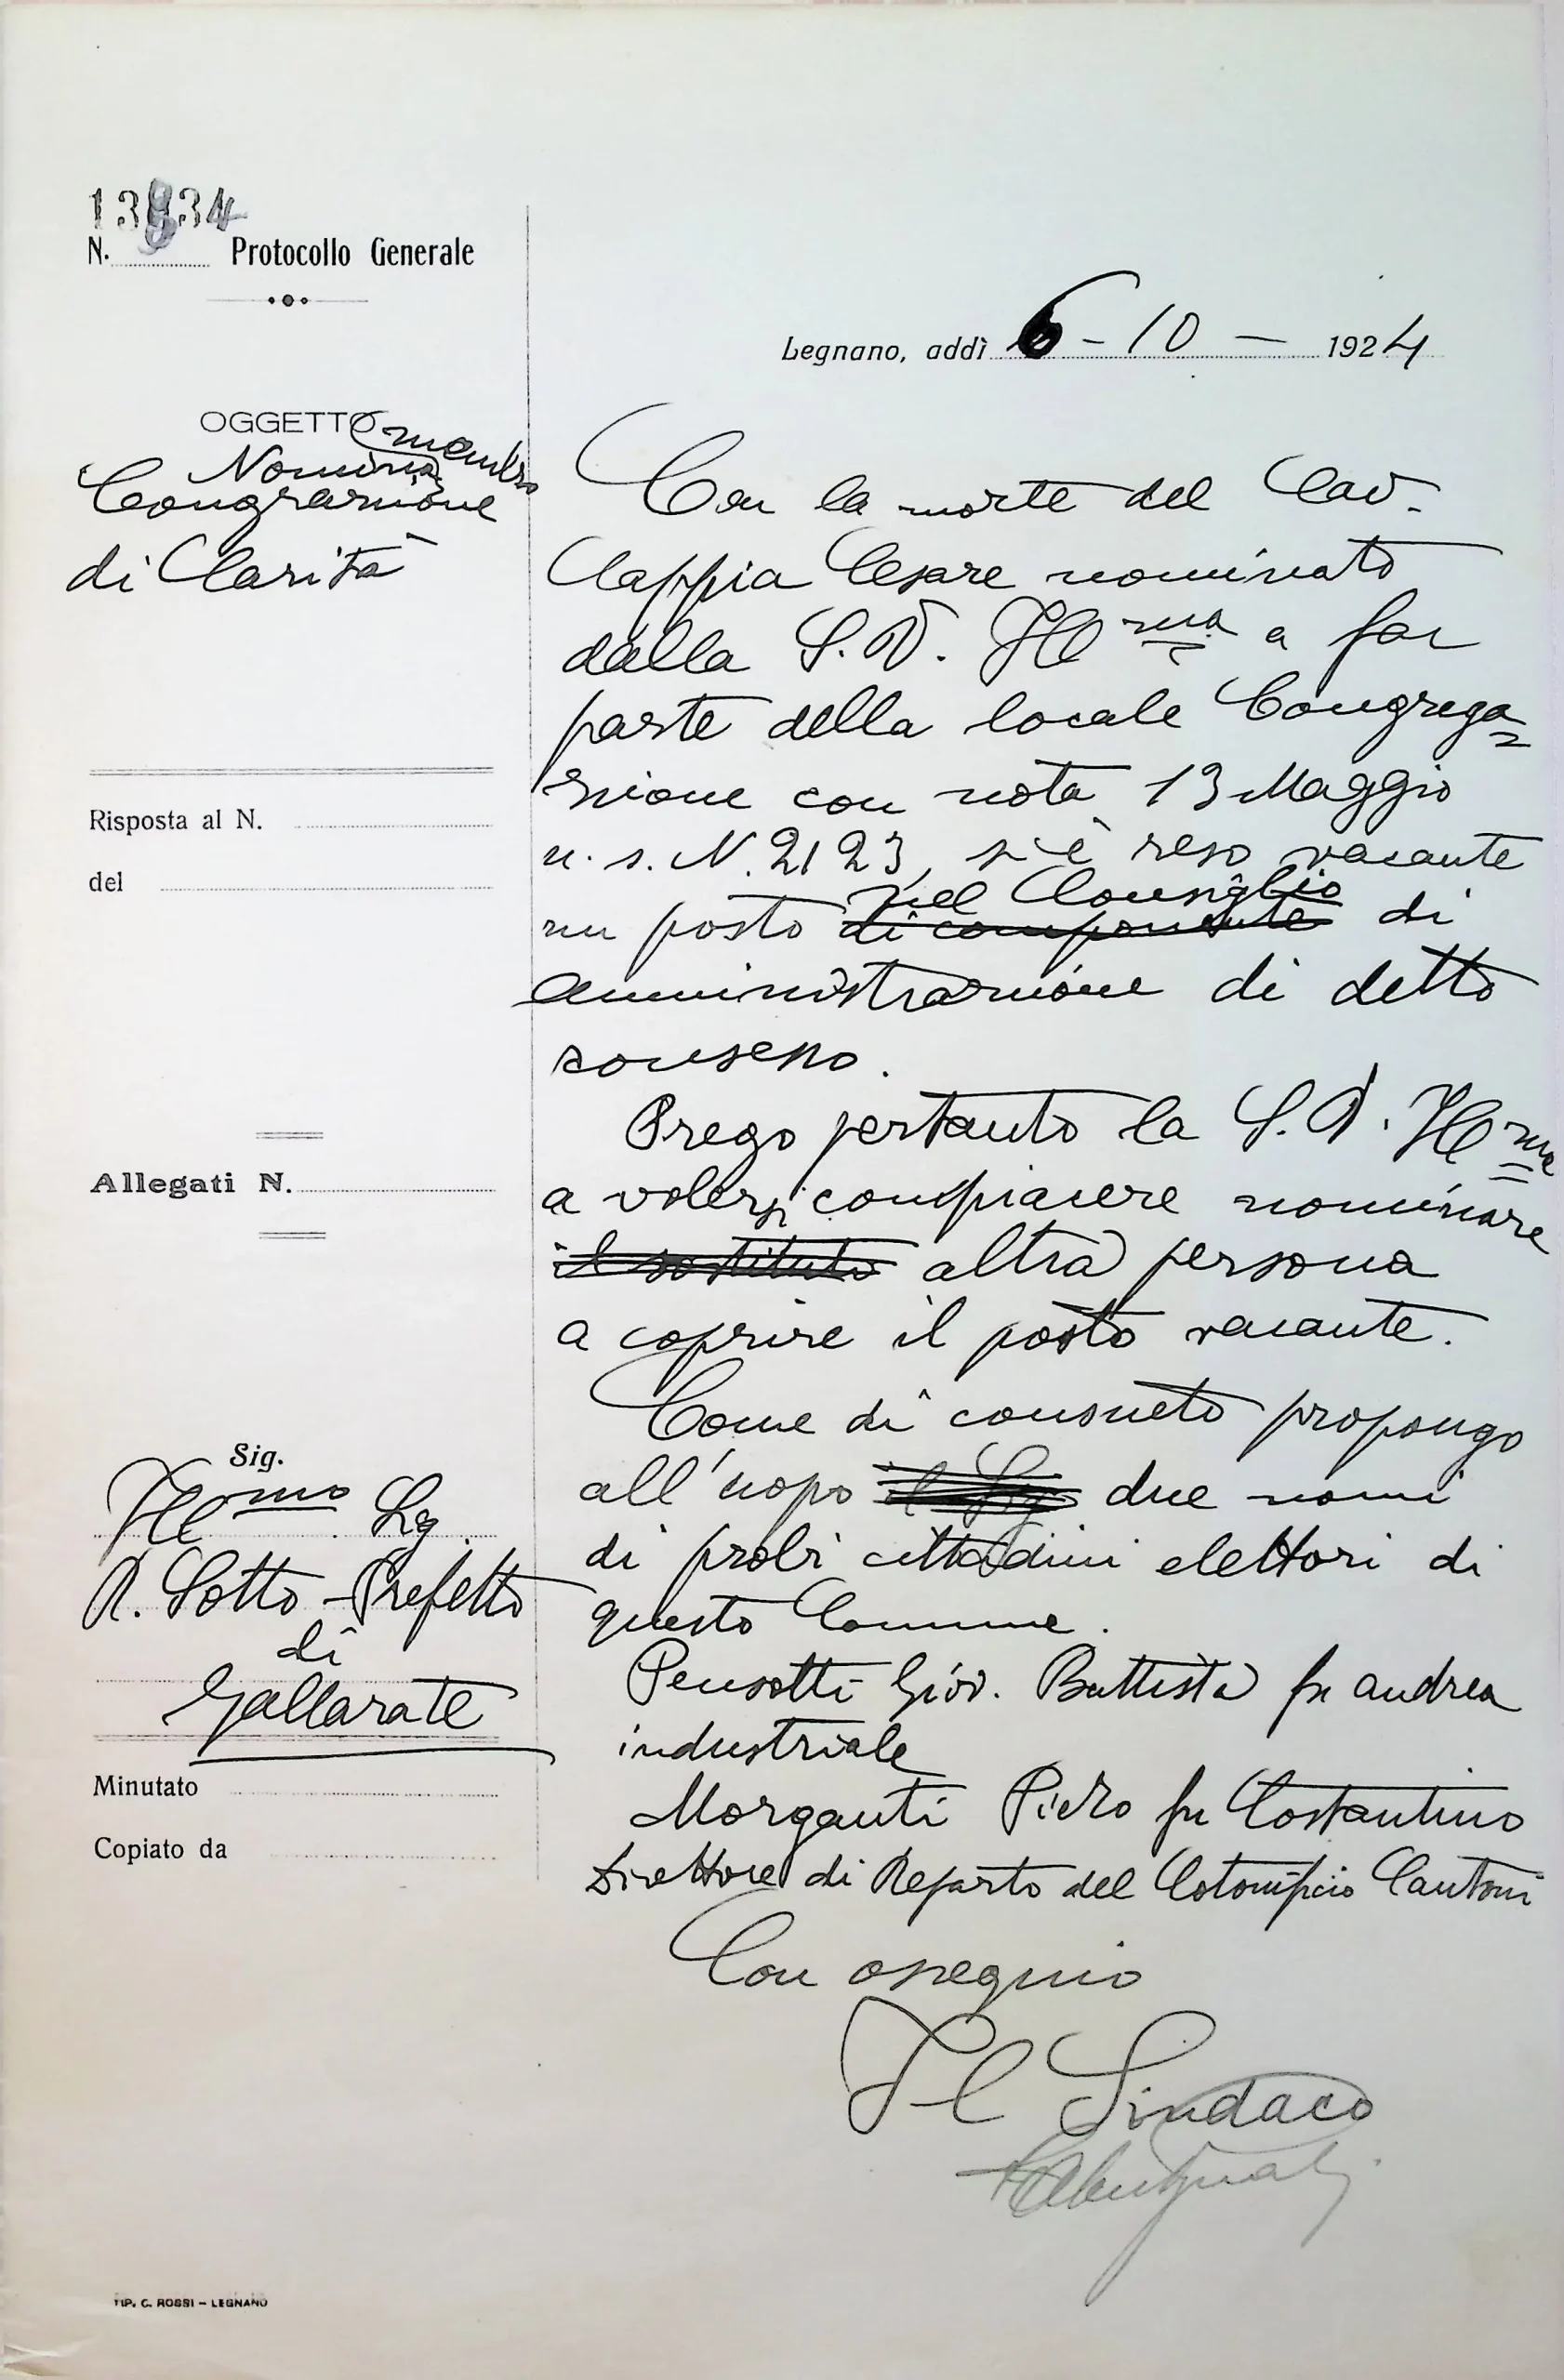 13934
N. Protocollo Generale
Legnano, addì 6 - 10 - 1924
OGGETTO
Nomina membro
Congrazione
di Carità
Risposta al N.
del
Allegati N.
Sig.
Ill mo Sig.
R. Sotto-Prefetto
di
Gallarate
Minutato
Copiato da
Con la morte del Cav.
Cappia Cesare nominato
dalla S.V. Ill ma a far
parte della locale Congrega=
zione con nota 13 Maggio
u. s. N. 2123, s'è reso vacante
nel Consiglio
un posto di componente di
amministrazione di detto
consesso.
Prego pertanto la S.V. Ill ma
a volersi compiacere nominare
il sostituto altra persona
a coprire il posto vacante.
Come di consueto propongo
all'uopo il Sig due nomi
di probi cittadini elettori di
questo Comune.
Pensotti Giov. Battista fu Andrea
industriale
Morganti Piero fu Costantino
Direttore di Reparto del Cotonificio Cantoni
Con ossequio
Il Sindaco
TIP. C. ROSSI - LEGNANO